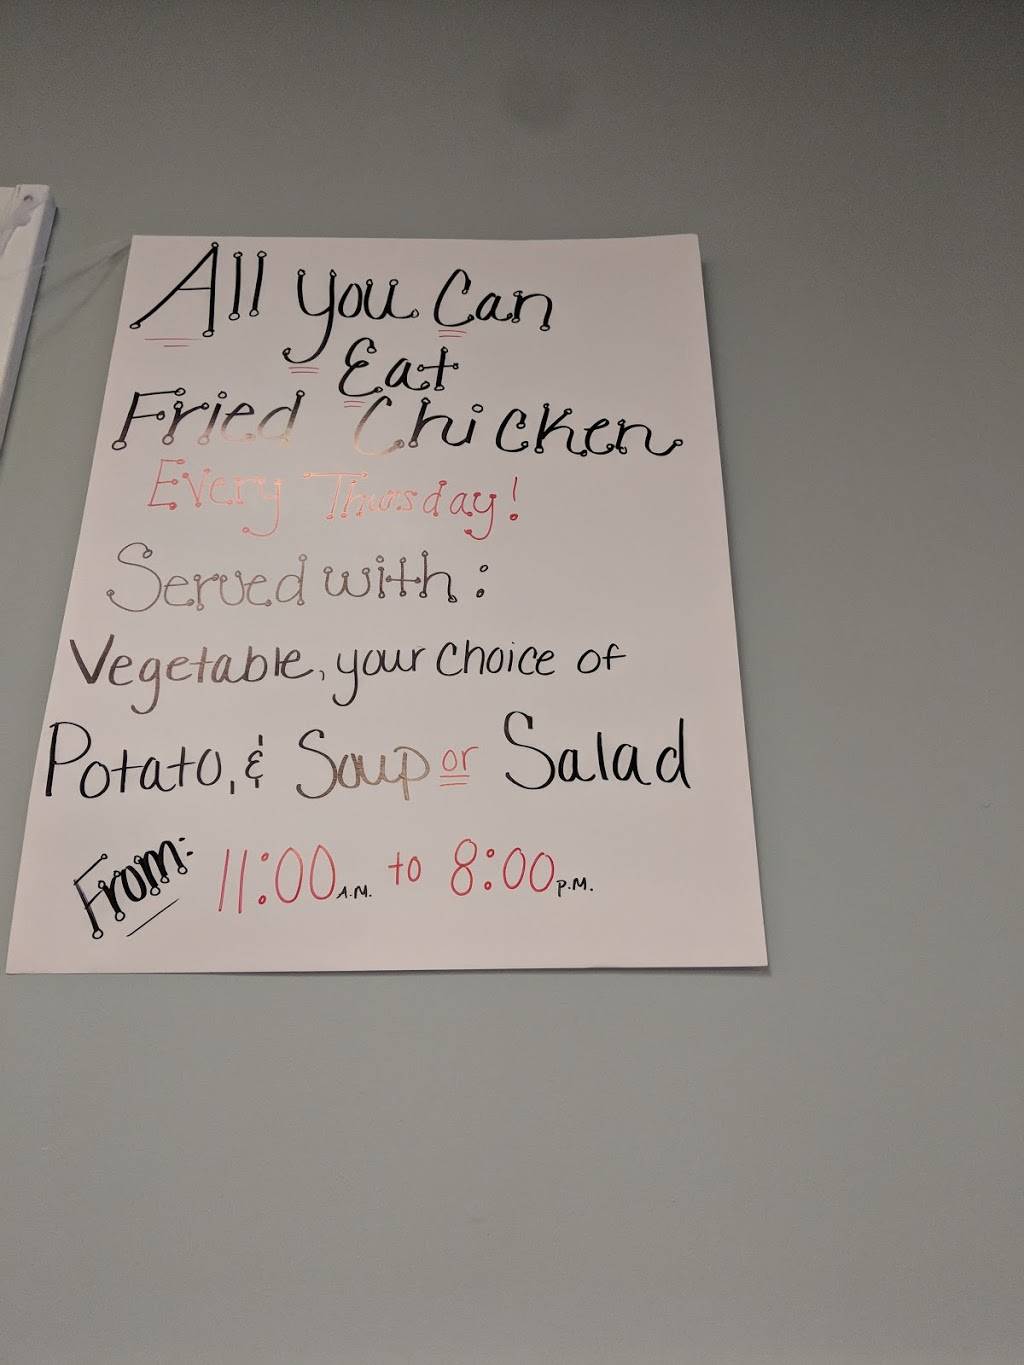 All you Can
Eat
Fried Chicken
Every Thursday!
Served with:
Vegetable, your choice of
Potato, & Soup or Salad
From: 11:00 A.M. to 8:00 P.M.